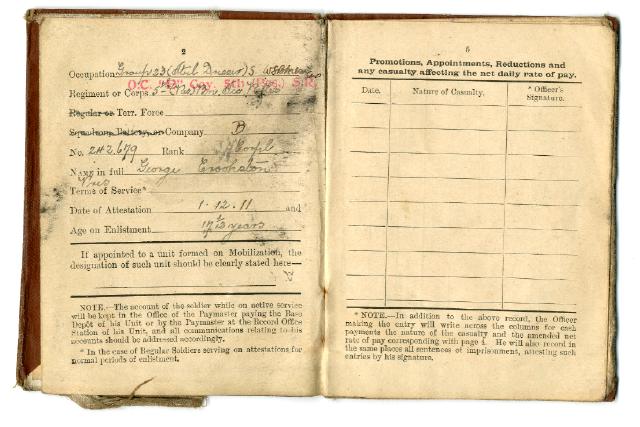 2
Occupation Group 23 (Steel Dresser) S
O.C. "D" Coy. 5th (Res.) S.R.
Regiment or Corps 5th (Res) Bn
Regular or Terr. Force
Squadron, Battery, or Company B
No. 242.679 Rank
Name in full George Crookston
Terms of Service*
Date of Attestation 1.12.11 and
Age on Enlistment years
If appointed to a unit formed on Mobilization, the
designation of such unit should be clearly stated here—
NOTE.—The account of the soldier while on active service
will be kept in the Office of the Paymaster paying the Base
Depôt of his Unit or by the Paymaster at the Record Office
Station of his Unit, and all communications relating to his
accounts should be addressed accordingly.
* In the case of Regular Soldiers serving on attestations for
normal periods of enlistment.
5
Promotions, Appointments, Reductions and
any casualty affecting the net daily rate of pay.
Date. Nature of Casualty. * Officer's
Signature.
* NOTE.—In addition to the above record, the Officer
making the entry will write across the columns for cash
payments the nature of the casualty and the amended net
rate of pay corresponding with page 4. He will also record in
the same places all sentences of imprisonment, attesting such
entries by his signature.